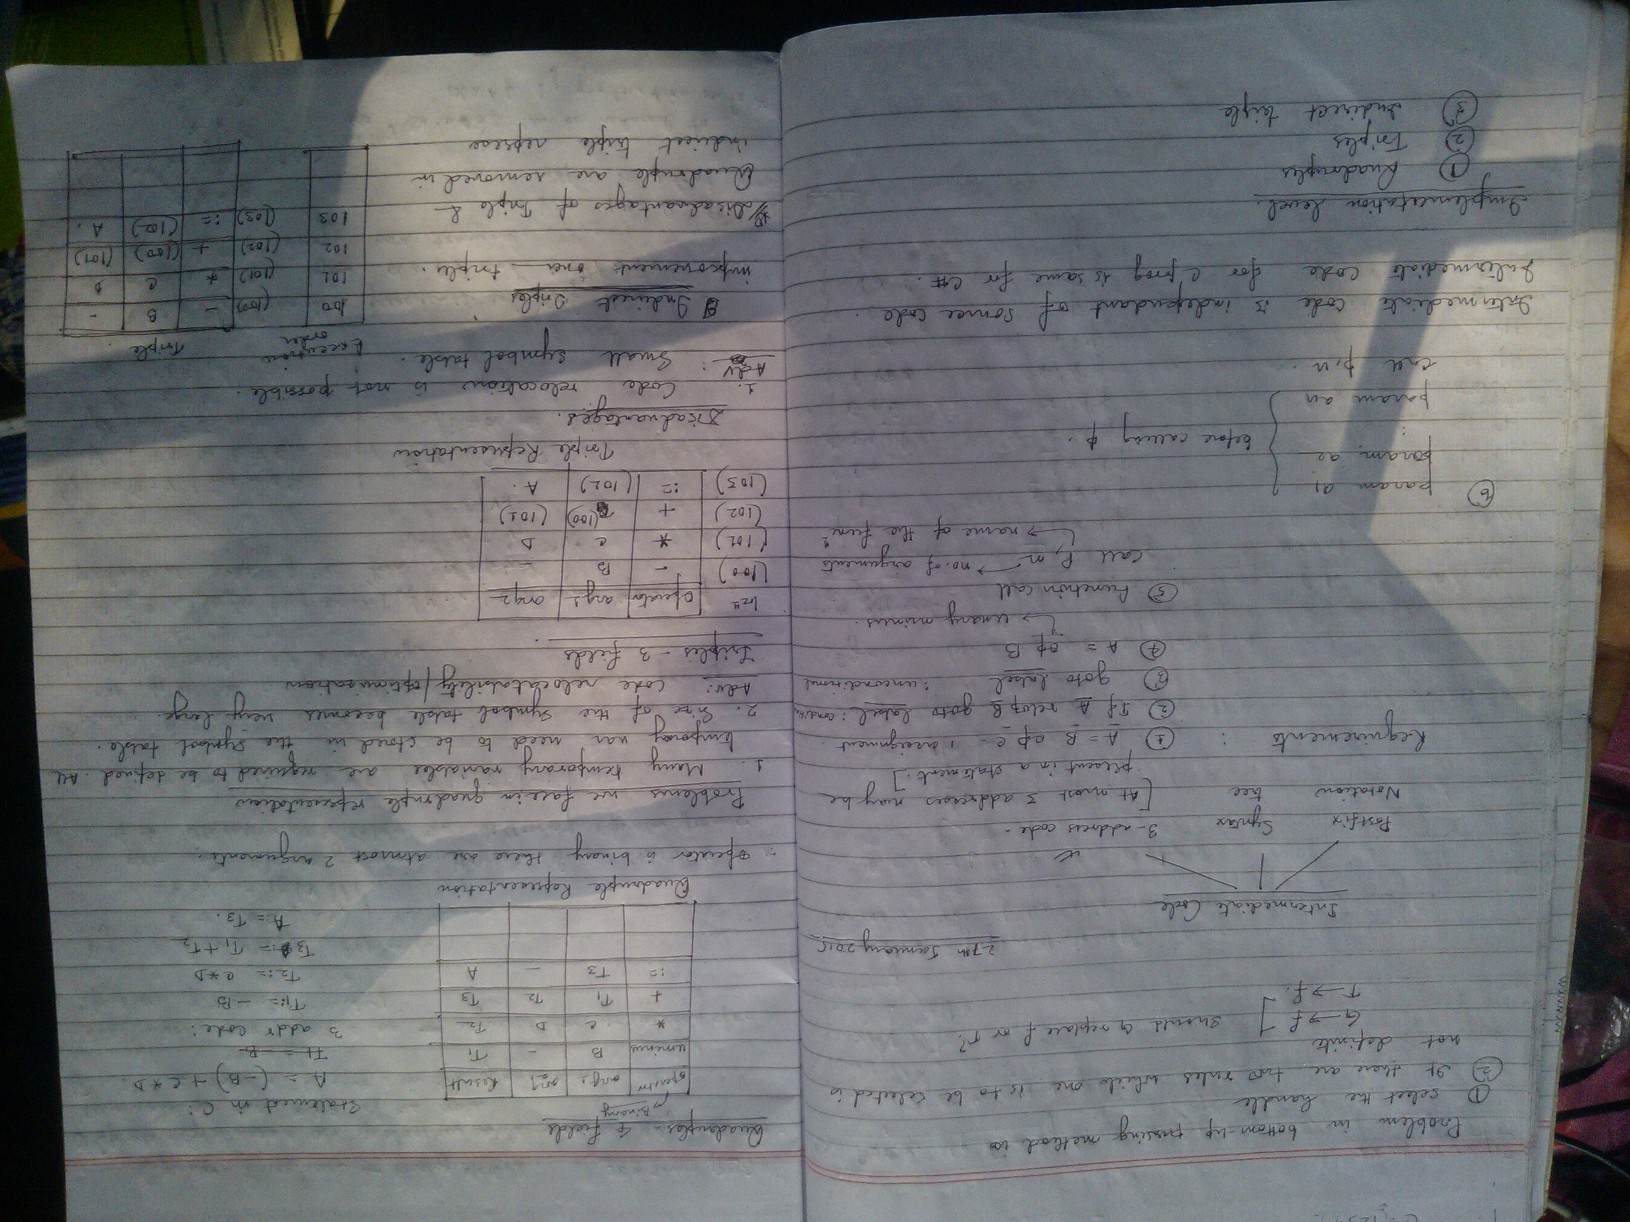 Problem in bottom-up parsing method is
① select the handle
② If there are two rules which one is to be selected is
not definite
G → f
T → f.
should I replace f or T?
27th January 2015
Intermediate Code
Postfix Notation
Syntax tree
3-address code.
[At most 3 addresses may be
present in a statement.]
Requirements :
① A = B op C - 1 assignment
② If A relop B goto label : condi
③ goto label : unconditional
④ A = op B
↳ unary minus.
⑤ Function call
Call P, n → no. of arguments
↳ name of the func?
⑥ param a1
param a2
:
param an
before calling p.
call p, n.
Intermediate code is independant of source code.
Intermediate code for C prog is same for C#.
Implementation level.
① Quadruples
② Triples
③ Indirect triple
Quadruples - 4 fields
Binary
operator arg1 arg2 Result
uminus B - T1
* C D T2
+ T1 T2 T3
:= T3 - A
Quadruple Representation
Statement in C:
A = (-B) + C * D
T1 = B
3 addr code:
T1 := -B
T2 := C * D
T3 := T1 + T2
A := T3.
∴ operator is binary there are atmost 2 arguments.
Problems we face in quadruple representation
1. Many temporary variables are required to be defined. All
temporary var need to be stored in the symbol table.
2. Size of the symbol table becomes very large.
Adv: code relocatability/optimization
Triples - 3 fields
operator arg1 arg2
(100) - B -
(101) * C D
(102) + (100) (101)
(103) := (102) A.
Triple Representation
Disadvantages.
1. Code relocation is not possible.
Adv : Small symbol table.
Indirect Triples
improvement over triple.
Disadvantages of Triple &
Quadruple are removed in
indirect triple represe
Execution order
Triple.
100 (100) - B -
101 (101) * C D
102 (102) + (100) (101)
103 (103) := (102) A.